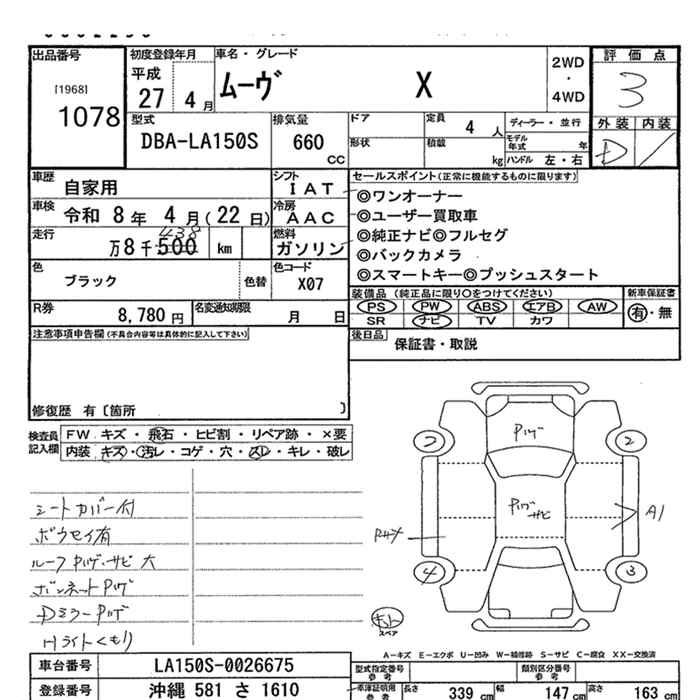 出品番号
[1968]
1078
初度登録年月
平成
27 4 月
車名・グレード
ムーヴ X
2WD
・
4WD
評価点
3
外装 内装
D
型式
DBA-LA150S
排気量
660
cc
ドア
定員
4 人
ディーラー・並行
形状
積載
kg
モデル年式 年
ハンドル 左・右
車歴
自家用
シフト
I A T
車検
令和 8 年 4 月 ( 22 日)
冷房
A A C
走行
438
万 8 千 500 km
燃料
ガソリン
色
ブラック
色替
色コード
X07
R券
8,780 円
名変通知期限
月 日
セールスポイント(正常に機能するものに限ります)
◎ワンオーナー
◎ユーザー買取車
◎純正ナビ◎フルセグ
◎バックカメラ
◎スマートキー◎プッシュスタート
装備品 (純正品に限り○をつけてください)
PS PW ABS エアB AW
SR ナビ TV カワ
新車保証書
有・無
後日品
保証書・取説
注意事項申告欄(不具合内容等は具体的に記入して下さい)
修復歴 有〔箇所 〕
検査員記入欄
FW キズ・飛石・ヒビ割・リペア跡・×要
内装 キズ・汚レ・コゲ・穴・スレ・キレ・破レ
シートカバー付
ボウセイ有
ルーフ Pハゲ・サビ 大
ボンネットPハゲ
Dミラー Pハゲ
Hライトくもり
Pハゲ
Pハゲ
サビ
A1
2
2
4
3
スペア
A-キズ E-エクボ U-凹み W-補修跡 S-サビ C-腐食 XX-交換済
車台番号
LA150S-0026675
登録番号
沖縄 581 さ 1610
型式指定番号
参考
類別区分番号
参考
車庫証明用
参考
長さ 339 cm
幅 147 cm
高さ 163 cm